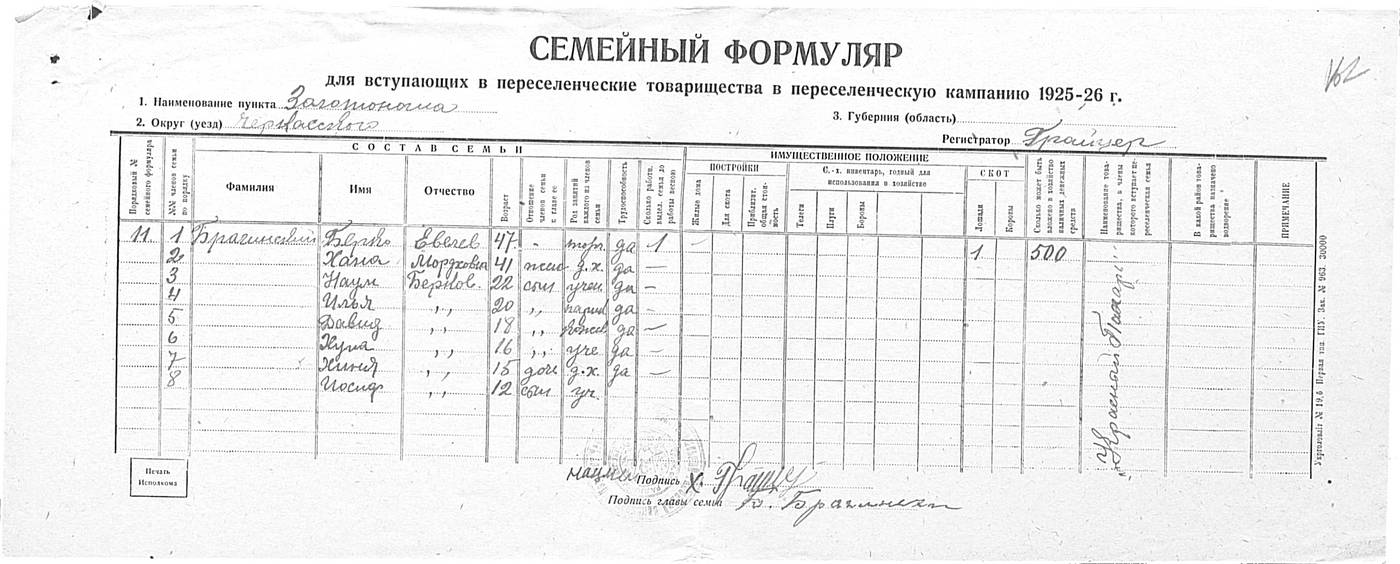 СЕМЕЙНЫЙ ФОРМУЛЯР
для вступающих в переселенческие товарищества в переселенческую кампанию 1925-26 г.
1. Наименование пункта
2. Округ (уезд) Черкасского
3. Губерния (область)
Регистратор Грайцер
СОСТАВ СЕМЬИ
ИМУЩЕСТВЕННОЕ ПОЛОЖЕНИЕ
Порядковый № семейного формуляра
№№ членов семьи по порядку
Фамилия
Имя
Отчество
Возраст
Отношение членов семьи к главе ее
Род занятий каждого из членов семьи
Трудоспособность
Сколько работн. выдел. семья до работы весною
ПОСТРОЙКИ
Жилые дома
Для скота
Приблизит. общая стоимость
С.-х. инвентарь, годный для использования в хозяйстве
Телеги
Плуги
Бороны
СКОТ
Лошади
Коровы
Сколько может быть вложено в хозяйство наличных денежных средств
Наименование товарищества, в члены которого вступает переселенческая семья
В какой район товарищества назначено водворение
ПРИМЕЧАНИЕ
11 1 Брагинский Берко Евсеев 47 - торг. да 1 — 1 500
2 Хана Мордховна 41 жена д.х. да —
3 Наум Берков. 22 сын учен да —
4 Илья ,, 20 ,, да —
5 Давид ,, 18 ,, да —
6 ,, 16 ,, уче да —
7 ,, 15 дочь д.х. да —
8 Иосиф ,, 12 сын уч.
"Красный Пахарь"
Печать Исполкома
Подпись Х. Грайцер
Подпись главы семьи Б. Брагинский
Зак. № 963. 30000